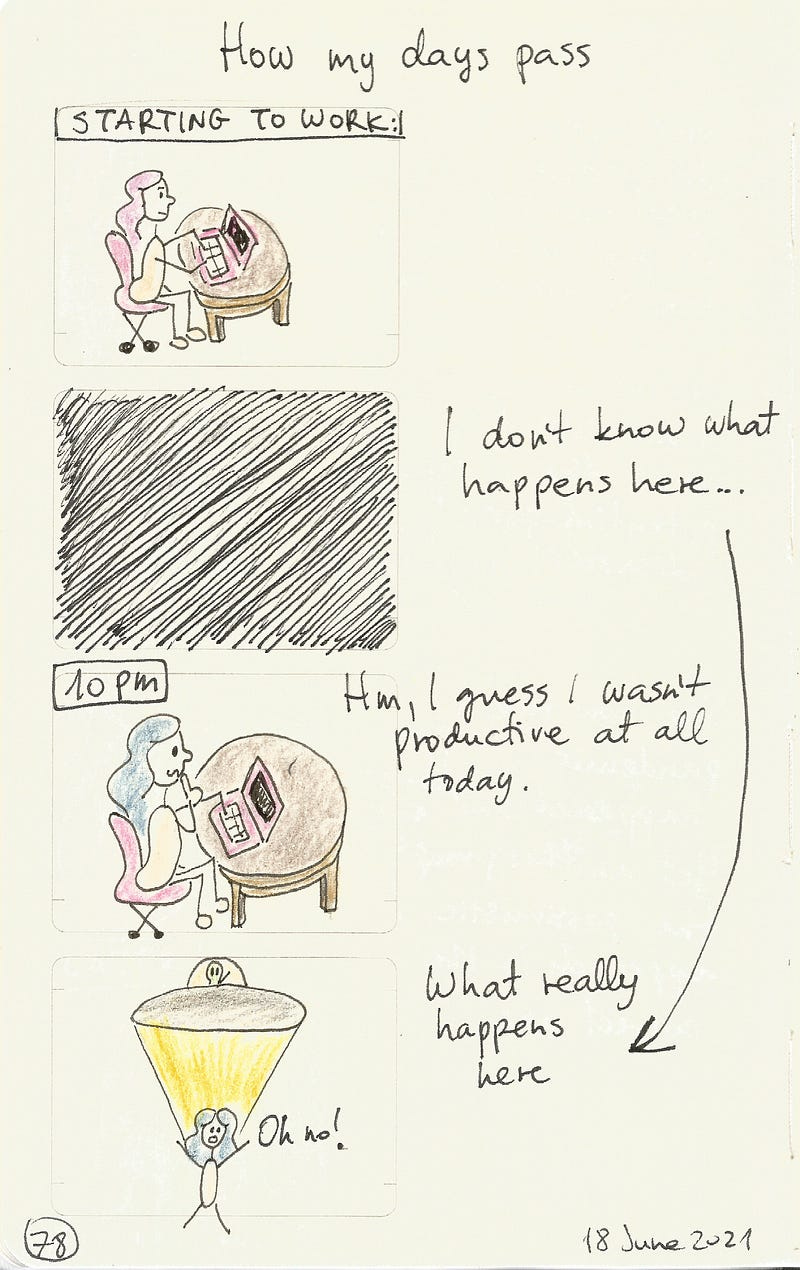 How my days pass
STARTING TO WORK:
I don't know what
happens here...
10 pm
Hm, I guess I wasn't
productive at all
today.
What really
happens
here
Oh no!
78
18 June 2021